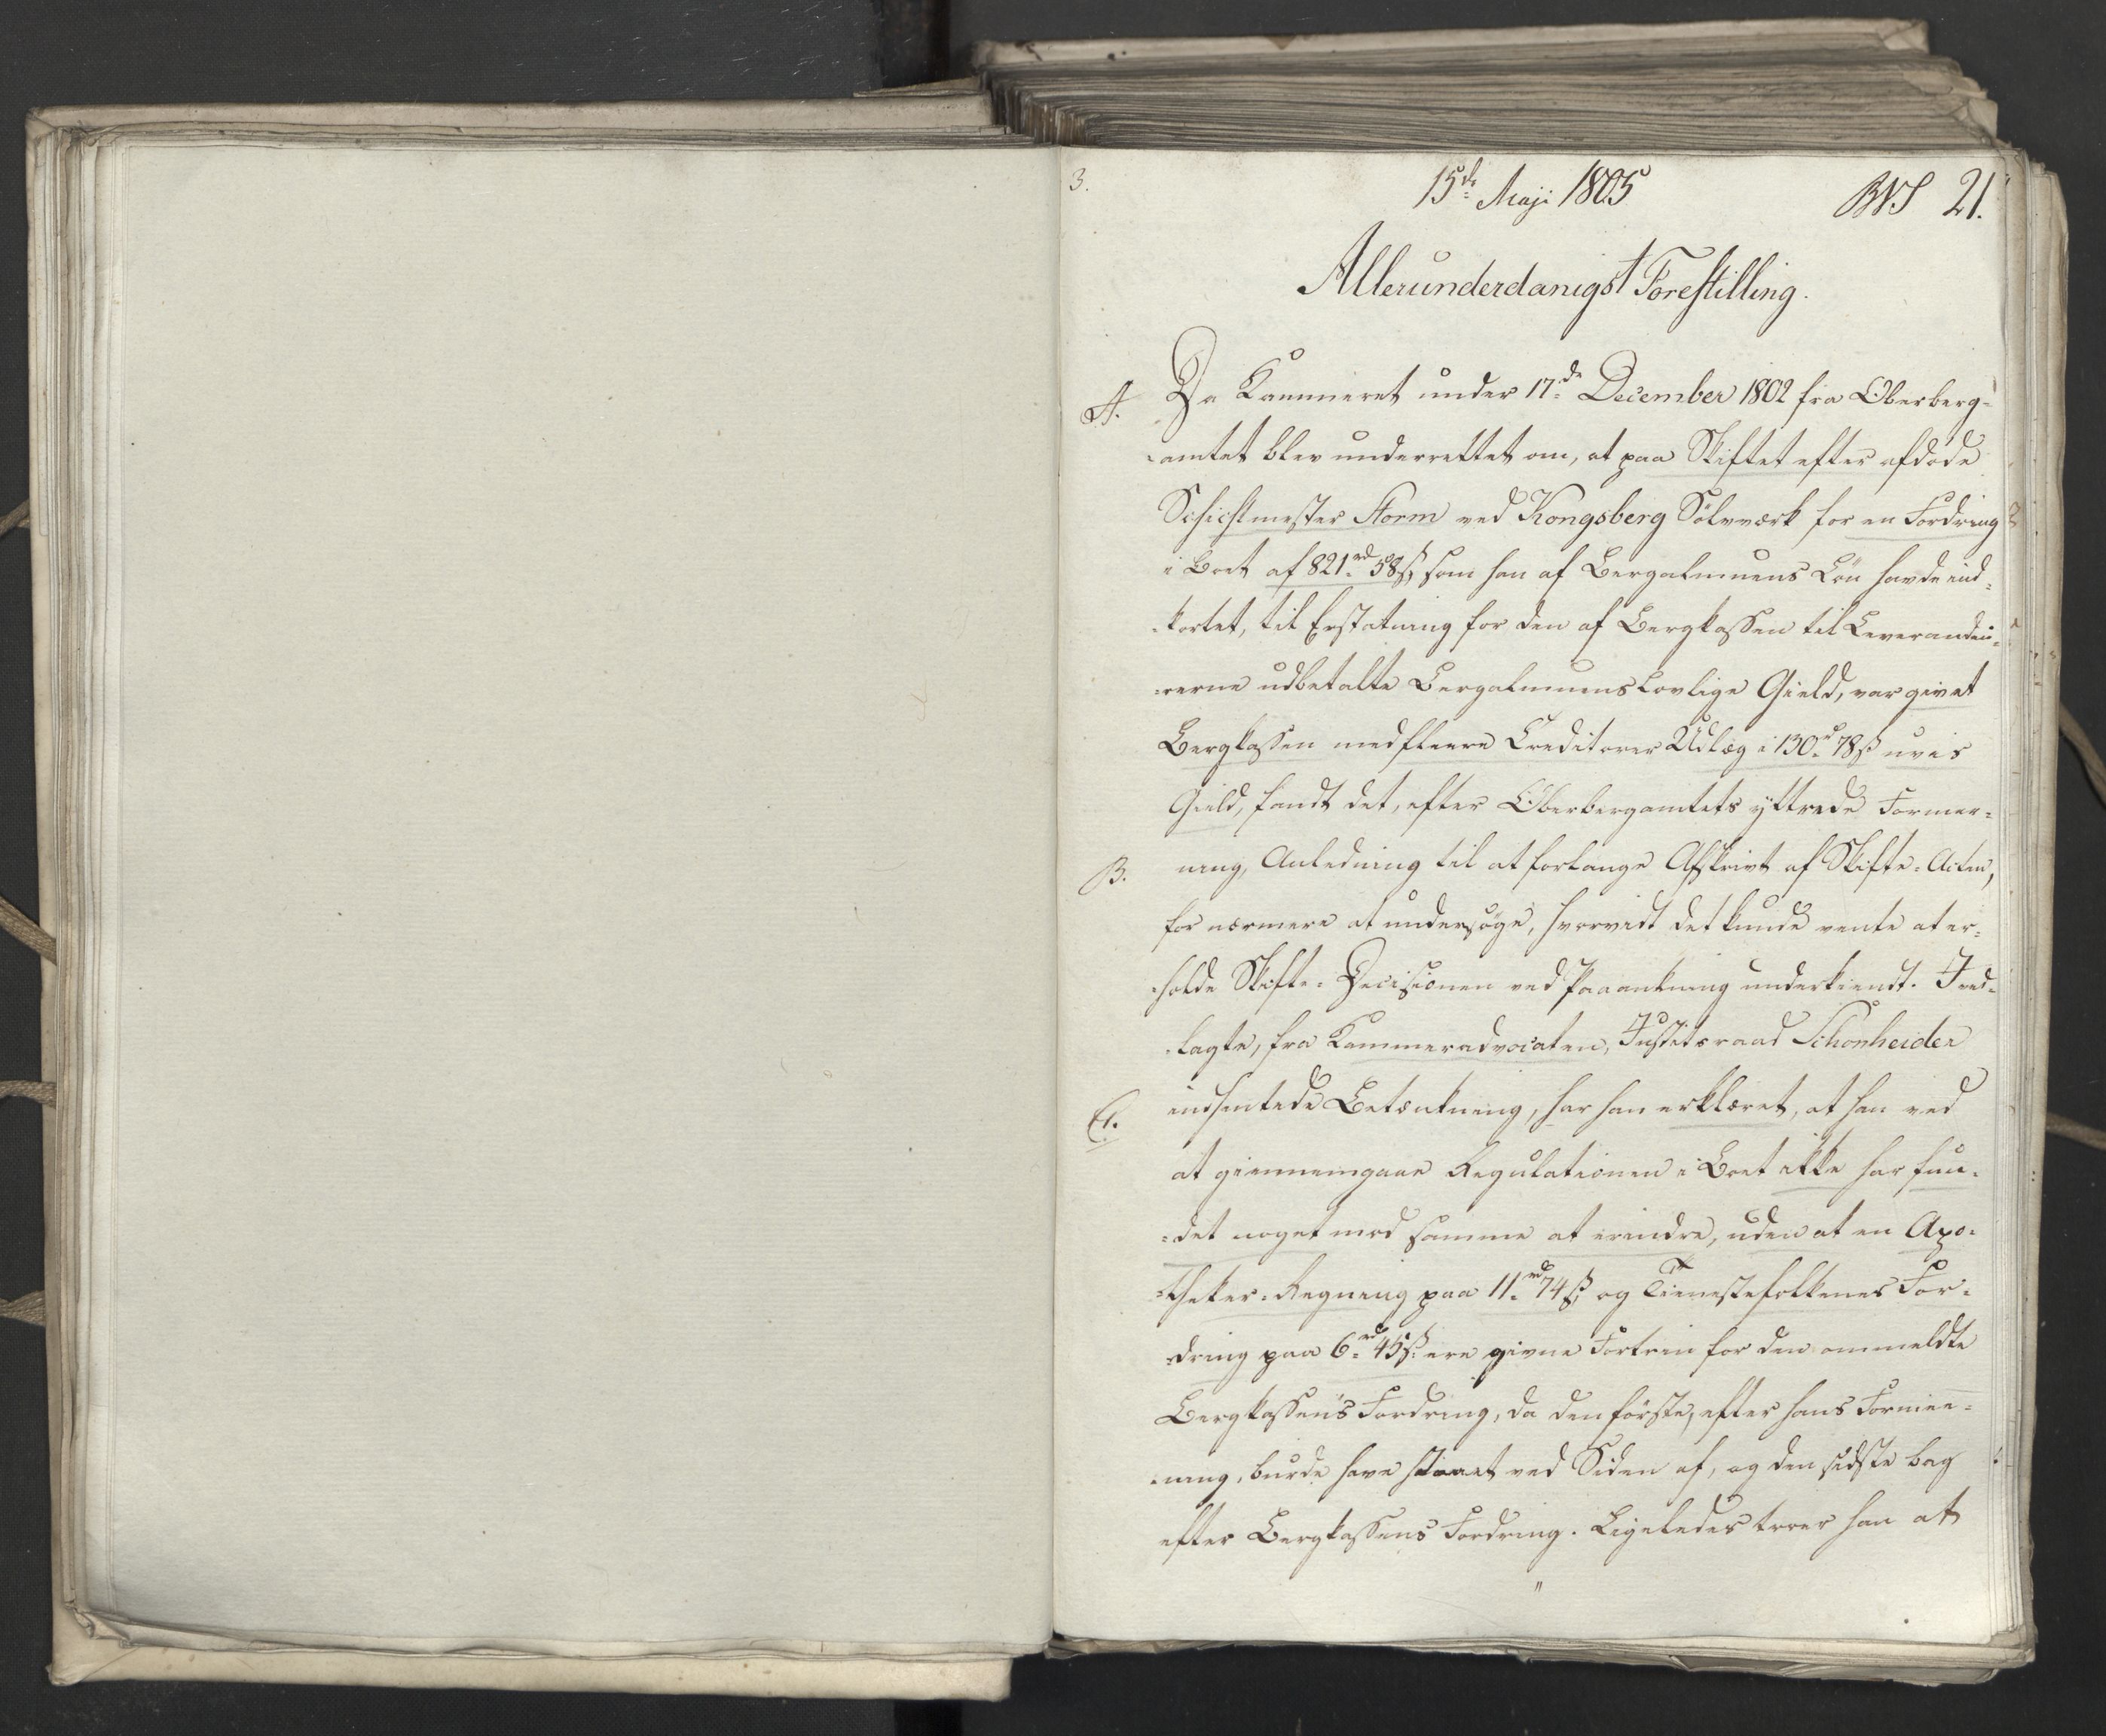 3.
15de Maji 1805
21.
Allerunderdanigst Forestilling.
A.
Da Kammeret under 17de December 1802 fra Oberberg-
-amtet blev underrettet om, at paa Skiftet efter afdøde
Schichtmester Storm ved Kongsberg Sölvværk for en Fordring
i Boet af 821rd 58ß, som han af Bergalmuens Lön havde ind-
-kortet, til Erstatning for den af Bergkassen til Leverandeu-
-rerne udbetalte Bergalmuens lovlige Gield, var givet
Bergkassen med fleere Creditorer Udlæg i 130rd 78ß uvis
Gield, fandt det, efter Oberbergamtets yttrede Formee-
B.
ning, Anledning til at forlange Afskrivt af Skifte-Acten,
for nærmere at undersøge, hvorvidt det kunde vente at er-
-holde Skifte-Decisionen ved Paaankning underkiendt. I ved-
-lagte, fra Kammeradvocaten, Justitsraad Schönheider
C.
indhentede Betænkning, har han erklæret, at han ved
at giennemgaae Regulationen i Boet ikke har fun-
-det noget mod samme at erindre, uden at en Apo-
-theker-Regning paa 11rd 74ß, og Tienestefolkenes For-
-dring paa 6rd 45ß ere givne Fortrin for den ommeldte
Bergkassens Fordring, da den første, efter hans Formee-
-ning, burde have staaet ved Siden af, og den sidste bag
efter Bergkassens Fordring. Ligeledes troer han at